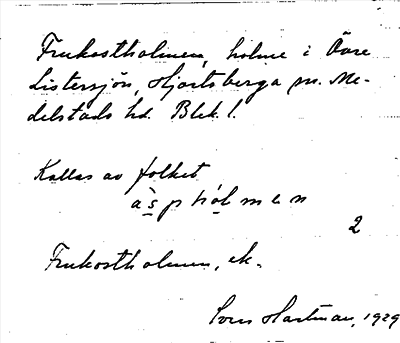 Frukostholmen, holme i Övre
Listersjön, Hjortsberga sn. Me-
delstads hd. Blek. l.
Kallas av folket
àsphólmen
2
Frukostholmen, ek.
Sven Hartman, 1929